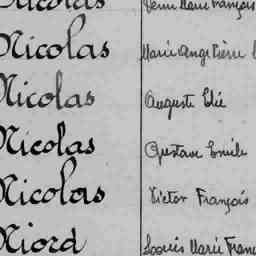 Nicolas Marie François
Nicolas Marie Ange Pierre
Nicolas Auguste Elie
Nicolas Gustave Emile
Nicolas Victor François
Niord Louis Marie